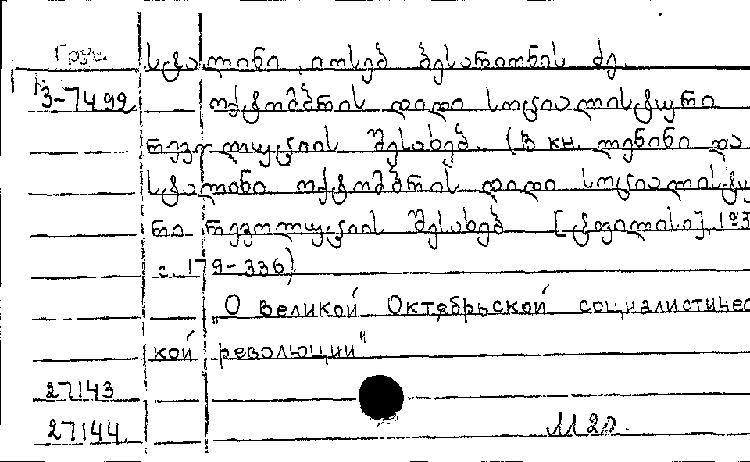 Груз. სტალინი, იოსებ ბესარიონის ძე.
13-7492 ოქტომბრის დიდი სოციალისტური
რევოლუციის შესახებ. (В кн. ლენინი და
სტალინი ოქტომბრის დიდი სოციალისტუ
რი რევოლუციის შესახებ [ტფილისი], 193
с. 179-336)
„О великой Октябрьской социалистичес
кой революции"
27143
27144